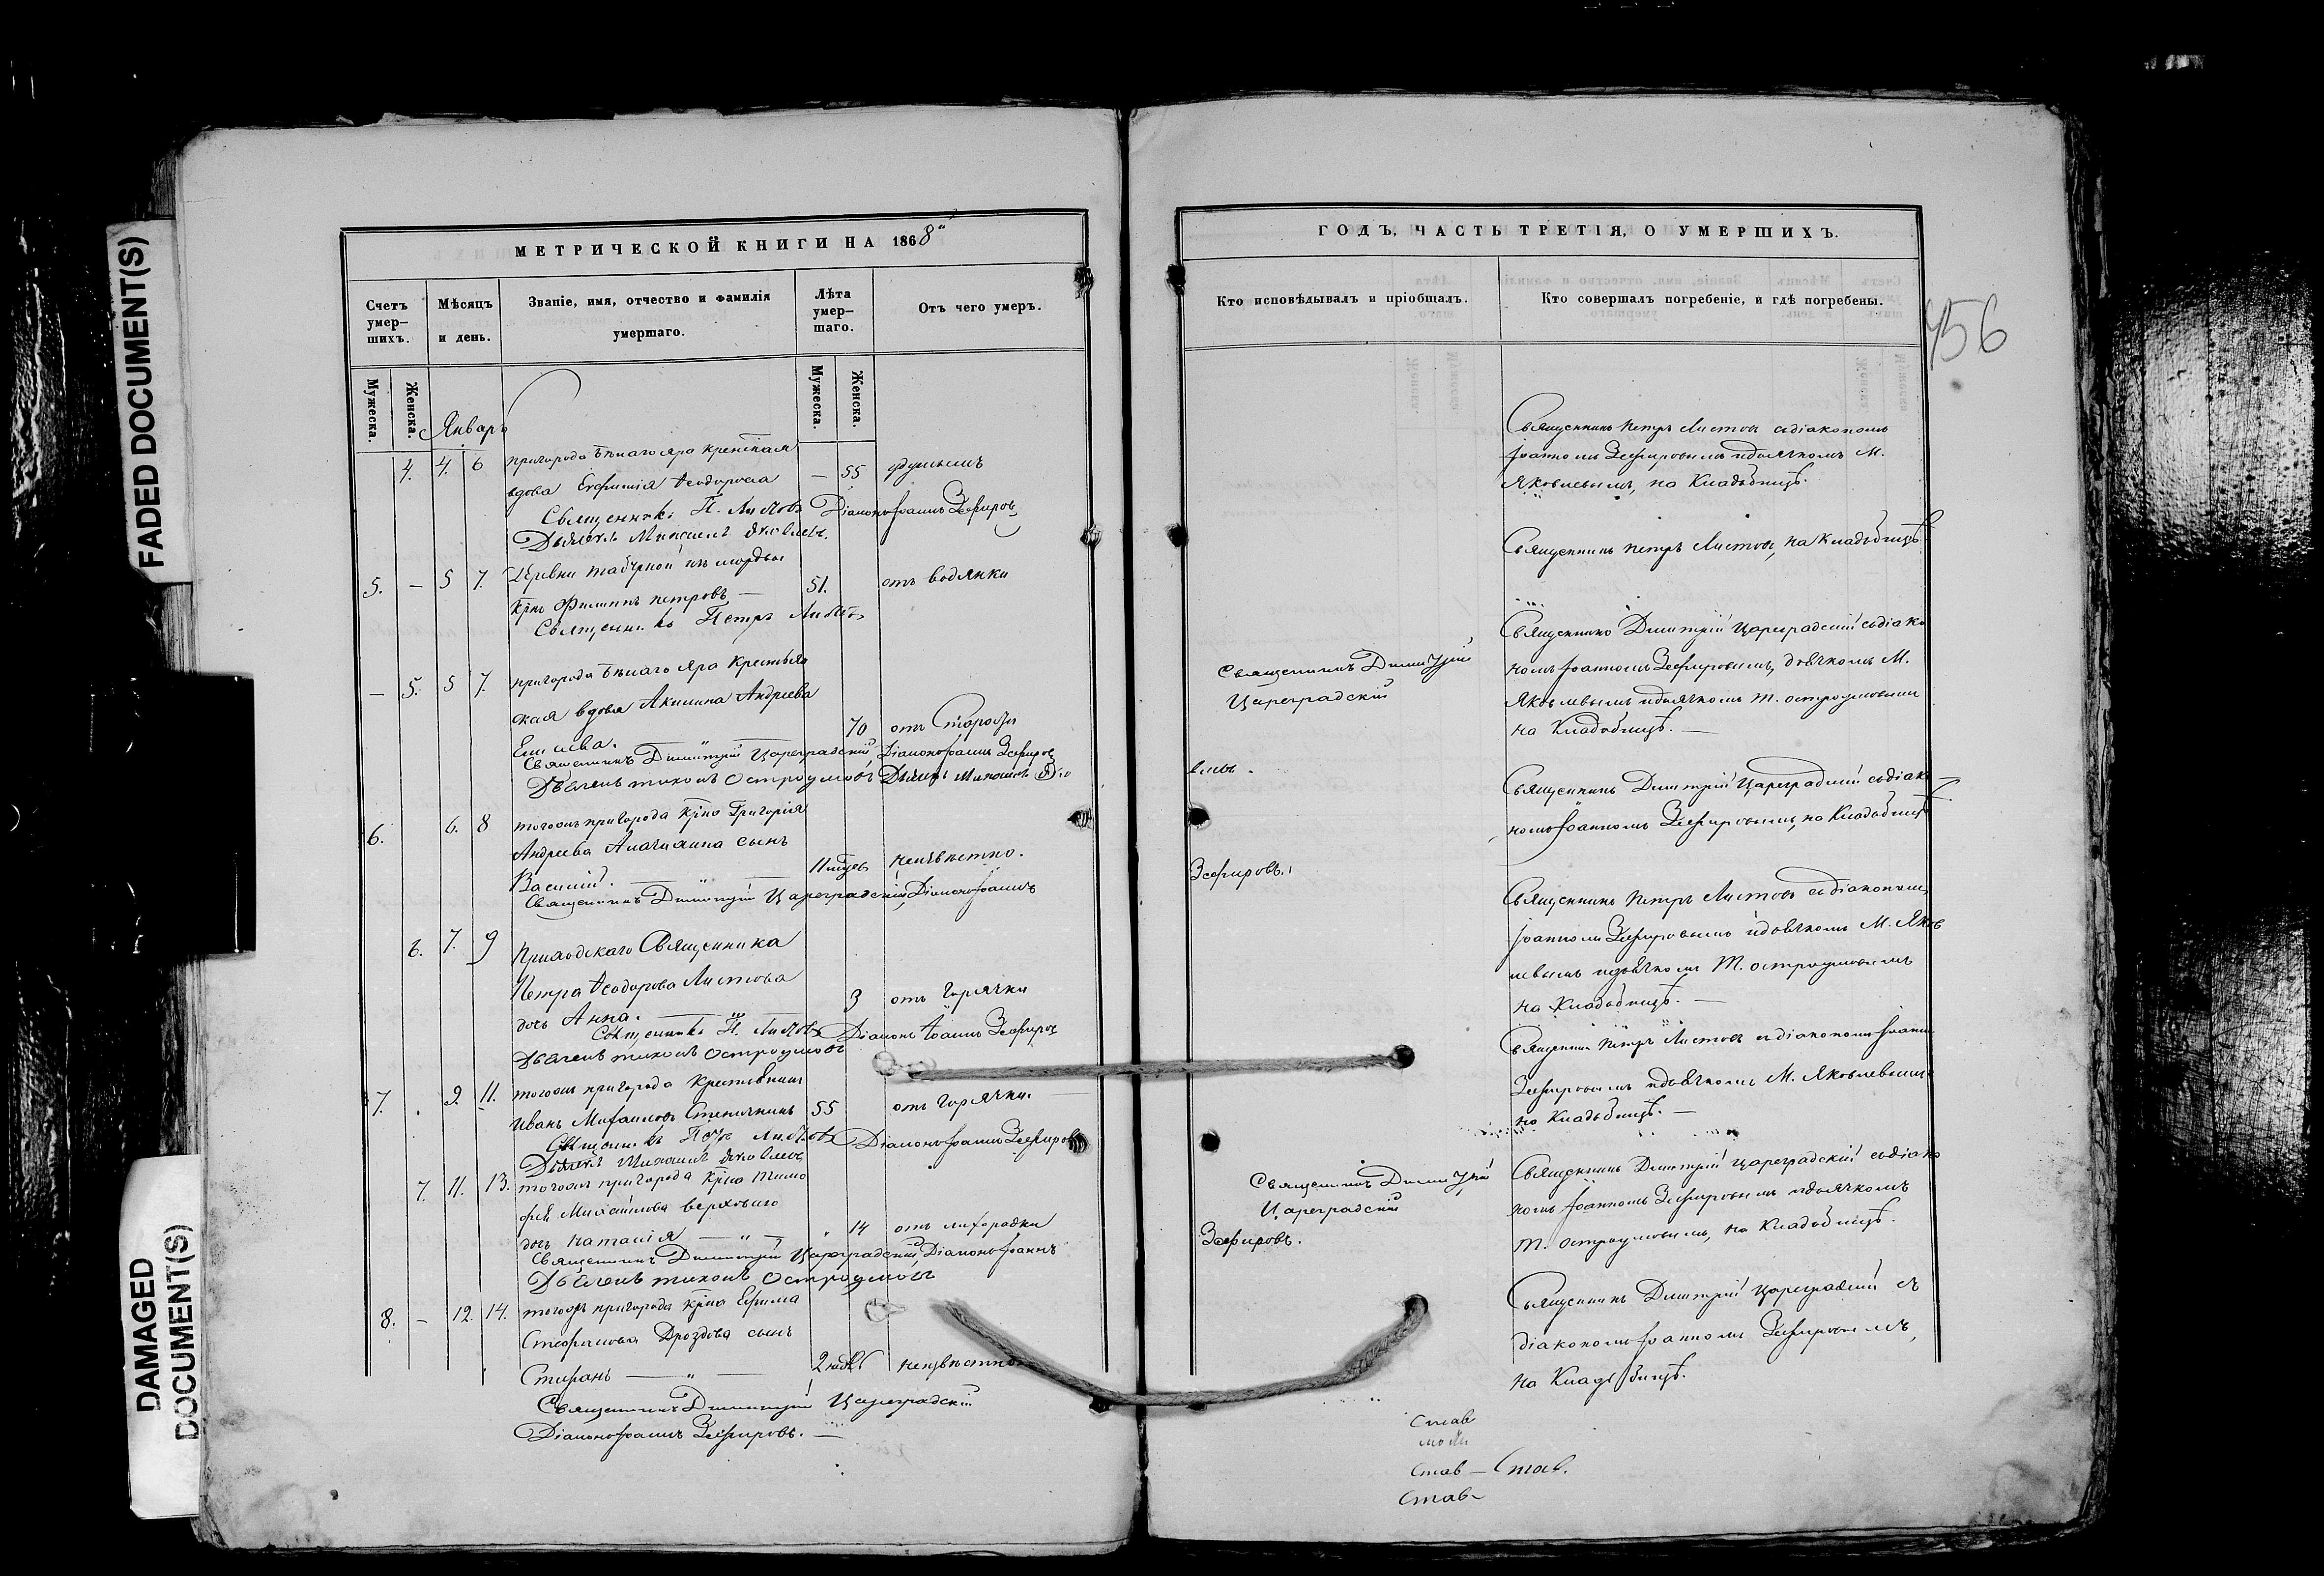 FADED DOCUMENT(S)
DAMAGED
DOCUMENT(S)
МЕТРИЧЕСКОЙ КНИГИ НА 1868
Счетъ умер-шихъ.
Мѣсяцъ и день.
Званіе, имя, отчество и фамилія умершаго.
Лѣта умер-шаго.
Отъ чего умеръ.
Мужеска.
Женска.
Мужеска.
Женска.
Январь
4. 4. 6 пригорода Бѣлаго яра
вдова Евфимія Ѳеодорова — 55
Священникъ П. Листовъ Діаконъ Іоаннъ Зефировъ
Дьячекъ Михаилъ Яковлевъ.
5. — 5 7. Деревни изъ мордвы
Крнъ Филиппъ петровъ — 51. отъ водянки
Священникъ Петръ Листовъ
— 5. 5 7. пригорода Бѣлаго яра Крестьян
ская вдова Акилина Андреева
70 отъ старости
Священникъ Димитрій Цареградскій, Діаконъ Іоаннъ Зефировъ
Дьячекъ тихонъ Остроумовъ Дьячекъ Михаилъ Яко
6. 6. 8 тогожъ пригорода Крна Григорія
Андреева сынъ
Василій. — " — 11 неизвѣстно.
Священникъ Димитрій Цареградскій, Діаконъ Іоаннъ
6. 7. 9 Приходскаго Священника
Петра Ѳеодорова Листова
дочь Анна. — " — 3 отъ горячки
Священникъ П. Листовъ Діаконъ Іоаннъ Зефировъ
Дьячекъ тихонъ Остроумовъ
7. . 9. 11. тогожъ пригорода Крестьянинъ
Иванъ Михаиловъ 55 отъ горячки. —
Священникъ Петръ Листовъ Діаконъ Іоаннъ Зефировъ
Дьячекъ Михаилъ Яковлевъ
7. 11. 13. тогожъ пригорода Крна Тимо
фея Михайлова
дочь Наталія — " — " 14 отъ лихорадки
Священникъ Димитрій Цареградскій, Діаконъ Іоаннъ
Дьячекъ тихонъ Остроумовъ
8. — 12. 14. тогожъ пригорода Крна Ефима
Стефанова Дроздова сынъ
Стефанъ — " — 2 неизвѣстно
Священникъ Димитрій Цареградскій
Діаконъ Іоаннъ Зефировъ. —
ГОДЪ, ЧАСТЬ ТРЕТІЯ, О УМЕРШИХЪ.
Кто исповѣдывалъ и пріобщалъ.
Кто совершалъ погребеніе, и гдѣ погребены.
456
Священникъ петръ Листовъ съ діакономъ
Іоанномъ Зефировымъ и дьячкомъ М.
Яковлевымъ, на Кладбищѣ.
Священникъ петръ Листовъ, на Кладбищѣ.
Священникъ Димитрій
Цареградскій
Священникъ Димитрій Цареградскій съ діако
номъ Іоанномъ Зефировымъ, дьячкомъ М.
Яковлевымъ и дьячкомъ Т. остроумовымъ
на Кладбищѣ. —
влевъ.
Священникъ Димитрій Цареградскій съ діако
номъ Іоанномъ Зефировымъ, на Кладбищѣ
Зефировъ.
Священникъ петръ Листовъ съ діакономъ
Іоанномъ Зефировымъ и дьячкомъ М. Яков
левымъ и дьячкомъ Т. остроумовымъ
на Кладбищѣ. —
Священникъ Петръ Листовъ съ діакономъ Іоанн
Зефировымъ и дьячкомъ М. Яковлевымъ
на Кладбищѣ. —
Священникъ Димитрій
Цареградскій
Зефировъ.
Священникъ Димитрій Цареградскій съ діако
номъ Іоанномъ Зефировымъ и дьячкомъ
Т. остроумовымъ, на Кладбищѣ.
Священникъ Димитрій Цареградскій съ
діакономъ Іоанномъ Зефировымъ,
на Кладбищѣ.
Став
Став — Став.
Став-